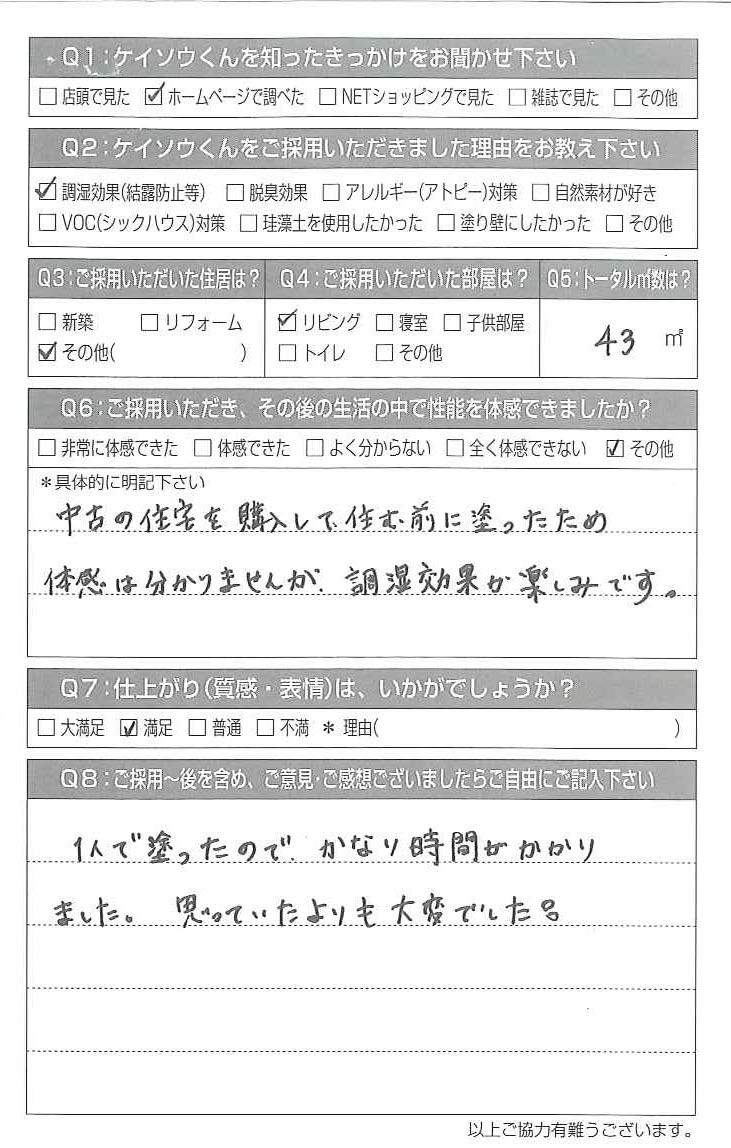 Q1:ケイソウくんを知ったきっかけをお聞かせ下さい
□店頭で見た ☑ホームページで調べた □NETショッピングで見た □雑誌で見た □その他
Q2:ケイソウくんをご採用いただきました理由をお教え下さい
☑調湿効果(結露防止等) □脱臭効果 □アレルギー(アトピー)対策 □自然素材が好き
□VOC(シックハウス)対策 □珪藻土を使用したかった □塗り壁にしたかった □その他
Q3:ご採用いただいた住居は? Q4:ご採用いただいた部屋は? Q5:トータル㎡数は?
□新築 □リフォーム ☑リビング □寝室 □子供部屋
43 ㎡
☑その他( ) □トイレ □その他
Q6:ご採用いただき、その後の生活の中で性能を体感できましたか?
□非常に体感できた □体感できた □よく分からない □全く体感できない ☑その他
*具体的に明記下さい
中古の住宅を購入して、住む前に塗ったため
体感は分かりませんが、調湿効果が楽しみです。
Q7:仕上がり(質感・表情)は、いかがでしょうか?
□大満足 ☑満足 □普通 □不満 *理由( )
Q8:ご採用~後を含め、ご意見・ご感想ございましたらご自由にご記入下さい
1人で塗ったので、かなり時間がかかり
ました。思っていたよりも大変でした。
以上ご協力有難うございます。